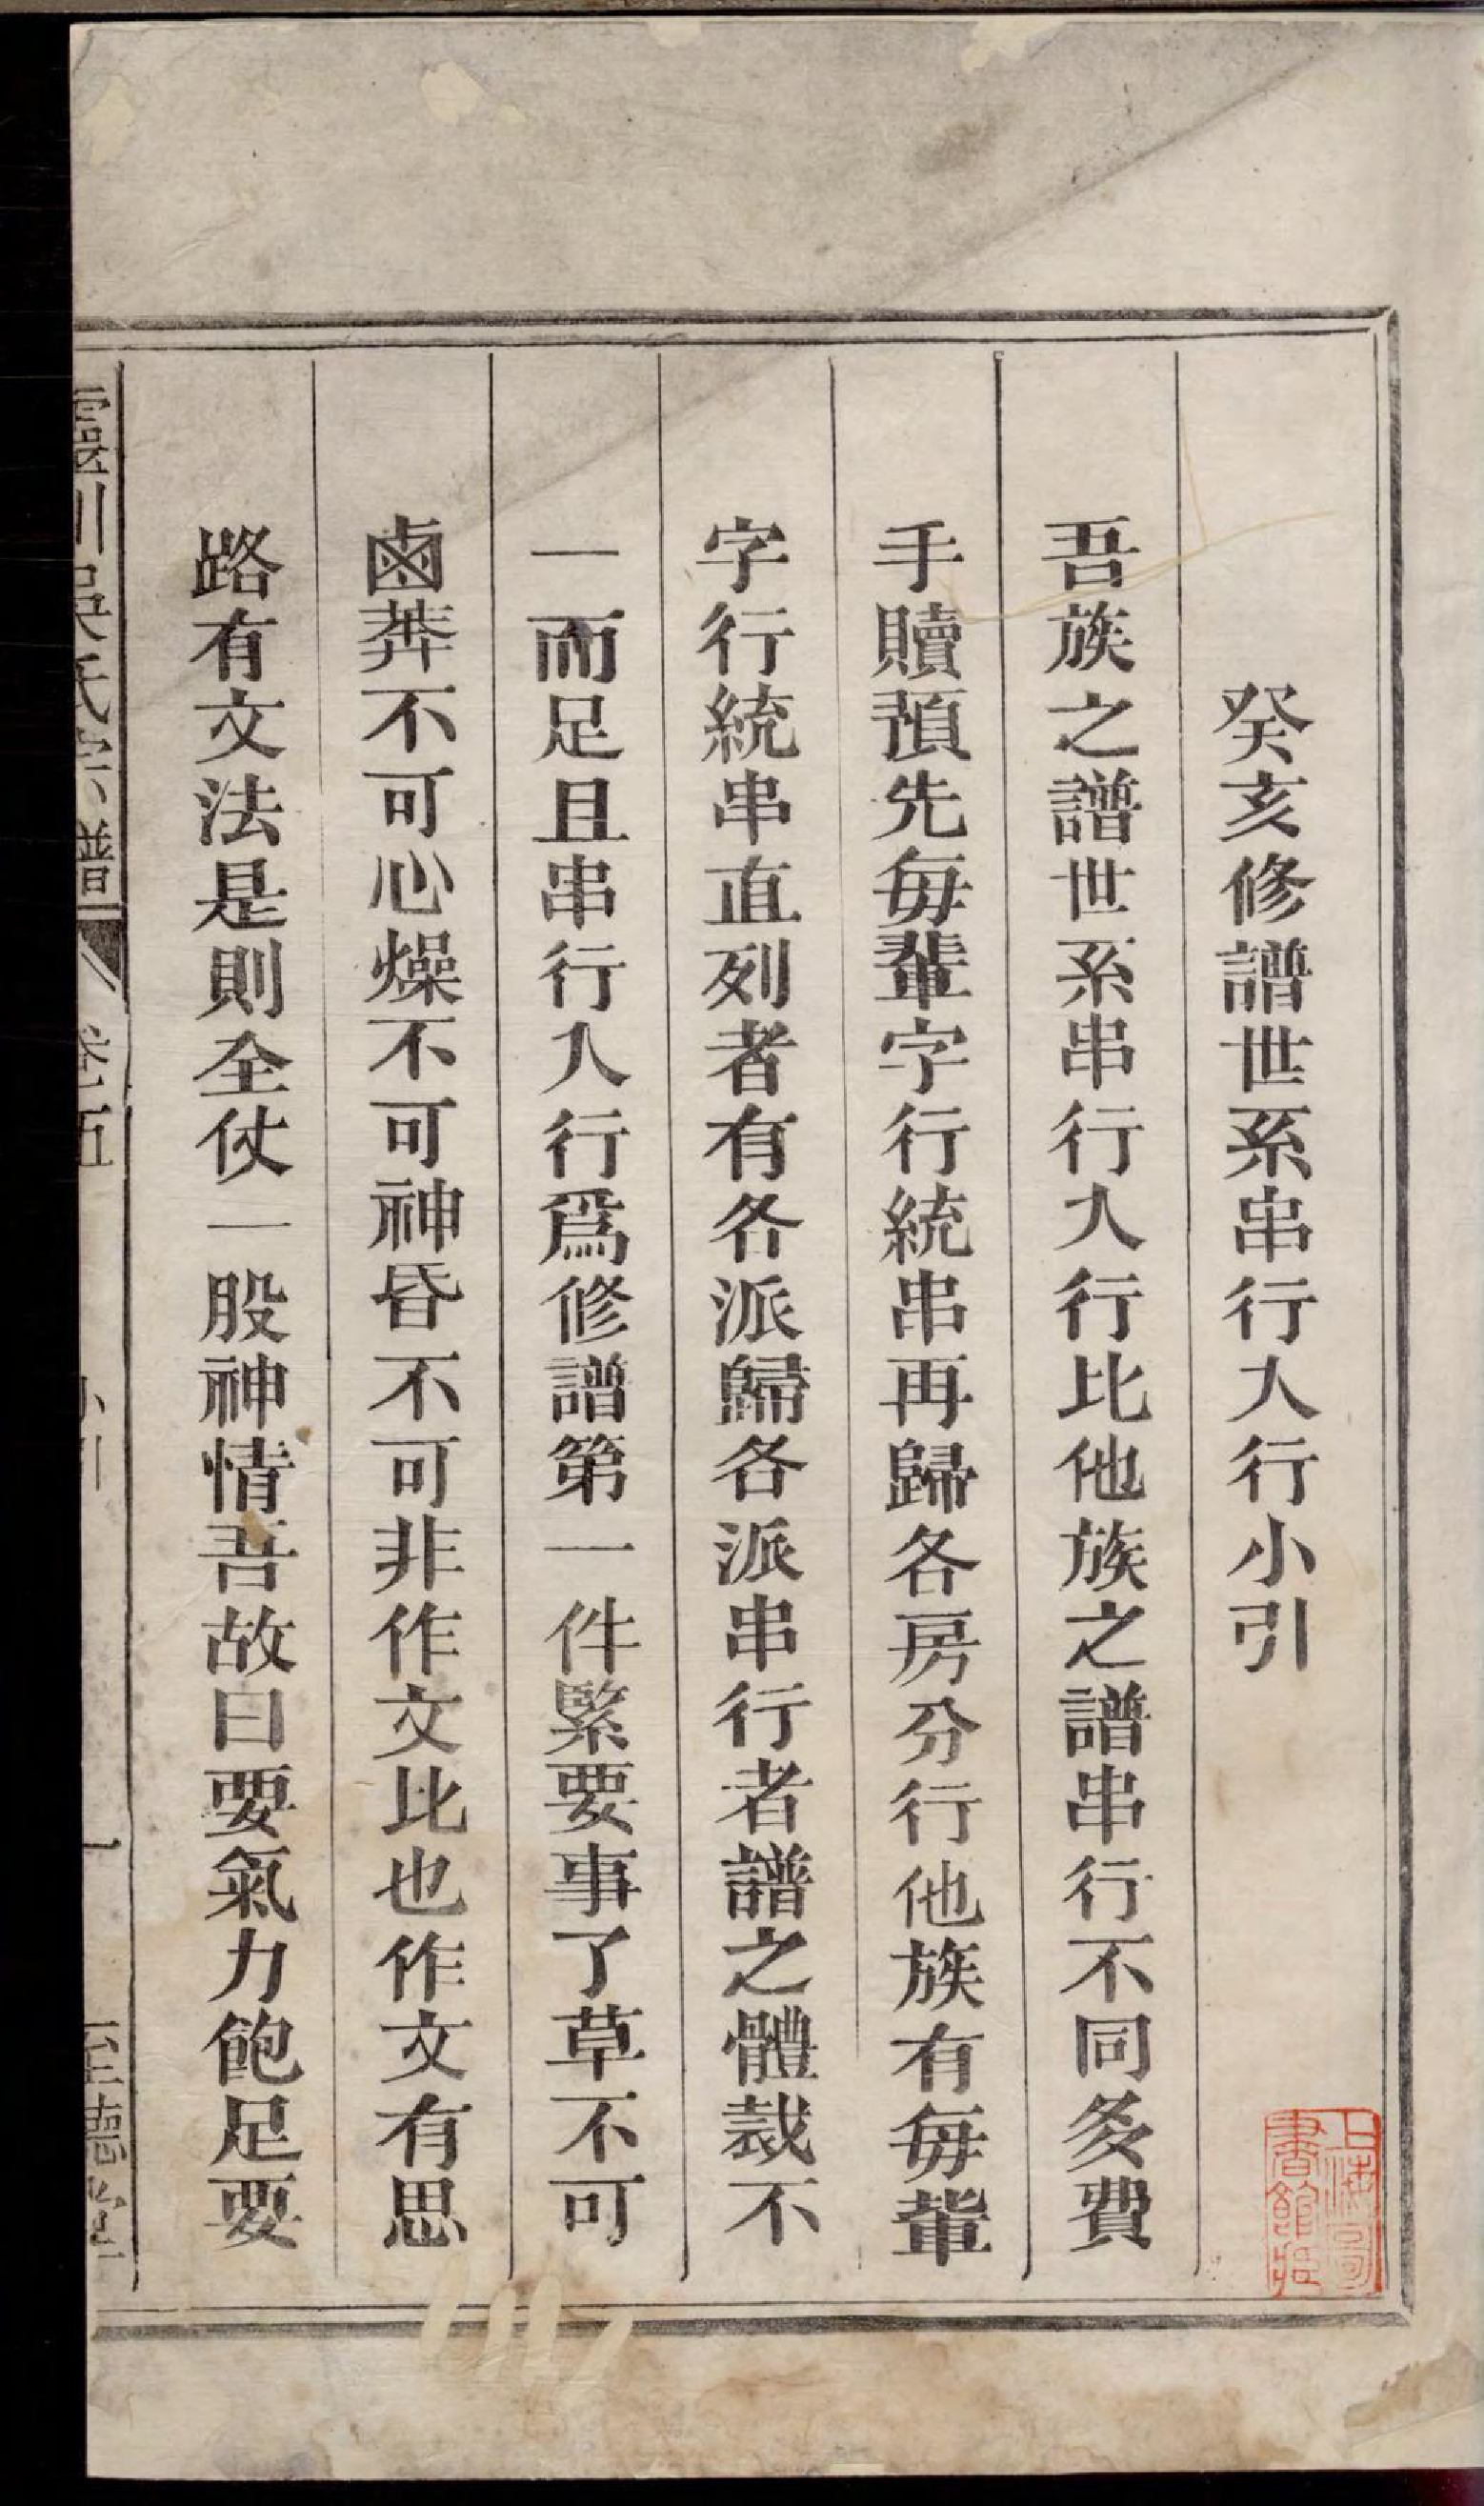 癸亥修譜世系串行入行小引
吾族之譜世系串行入行比他族之譜串行不同多費
手贖預先每輩字行統串再歸各房分行他族有每輩
字行統串直列者有各派歸各派串行者譜之體裁不
一而足且串行入行爲修譜第一件緊要事了草不可
鹵莽不可心燥不可神昏不可非作文比也作文有思
路有文法是則全仗一股神情吾故曰要氣力飽足要
靈川吳氏宗譜 卷五 小引 一 至德堂
上海圖書館藏